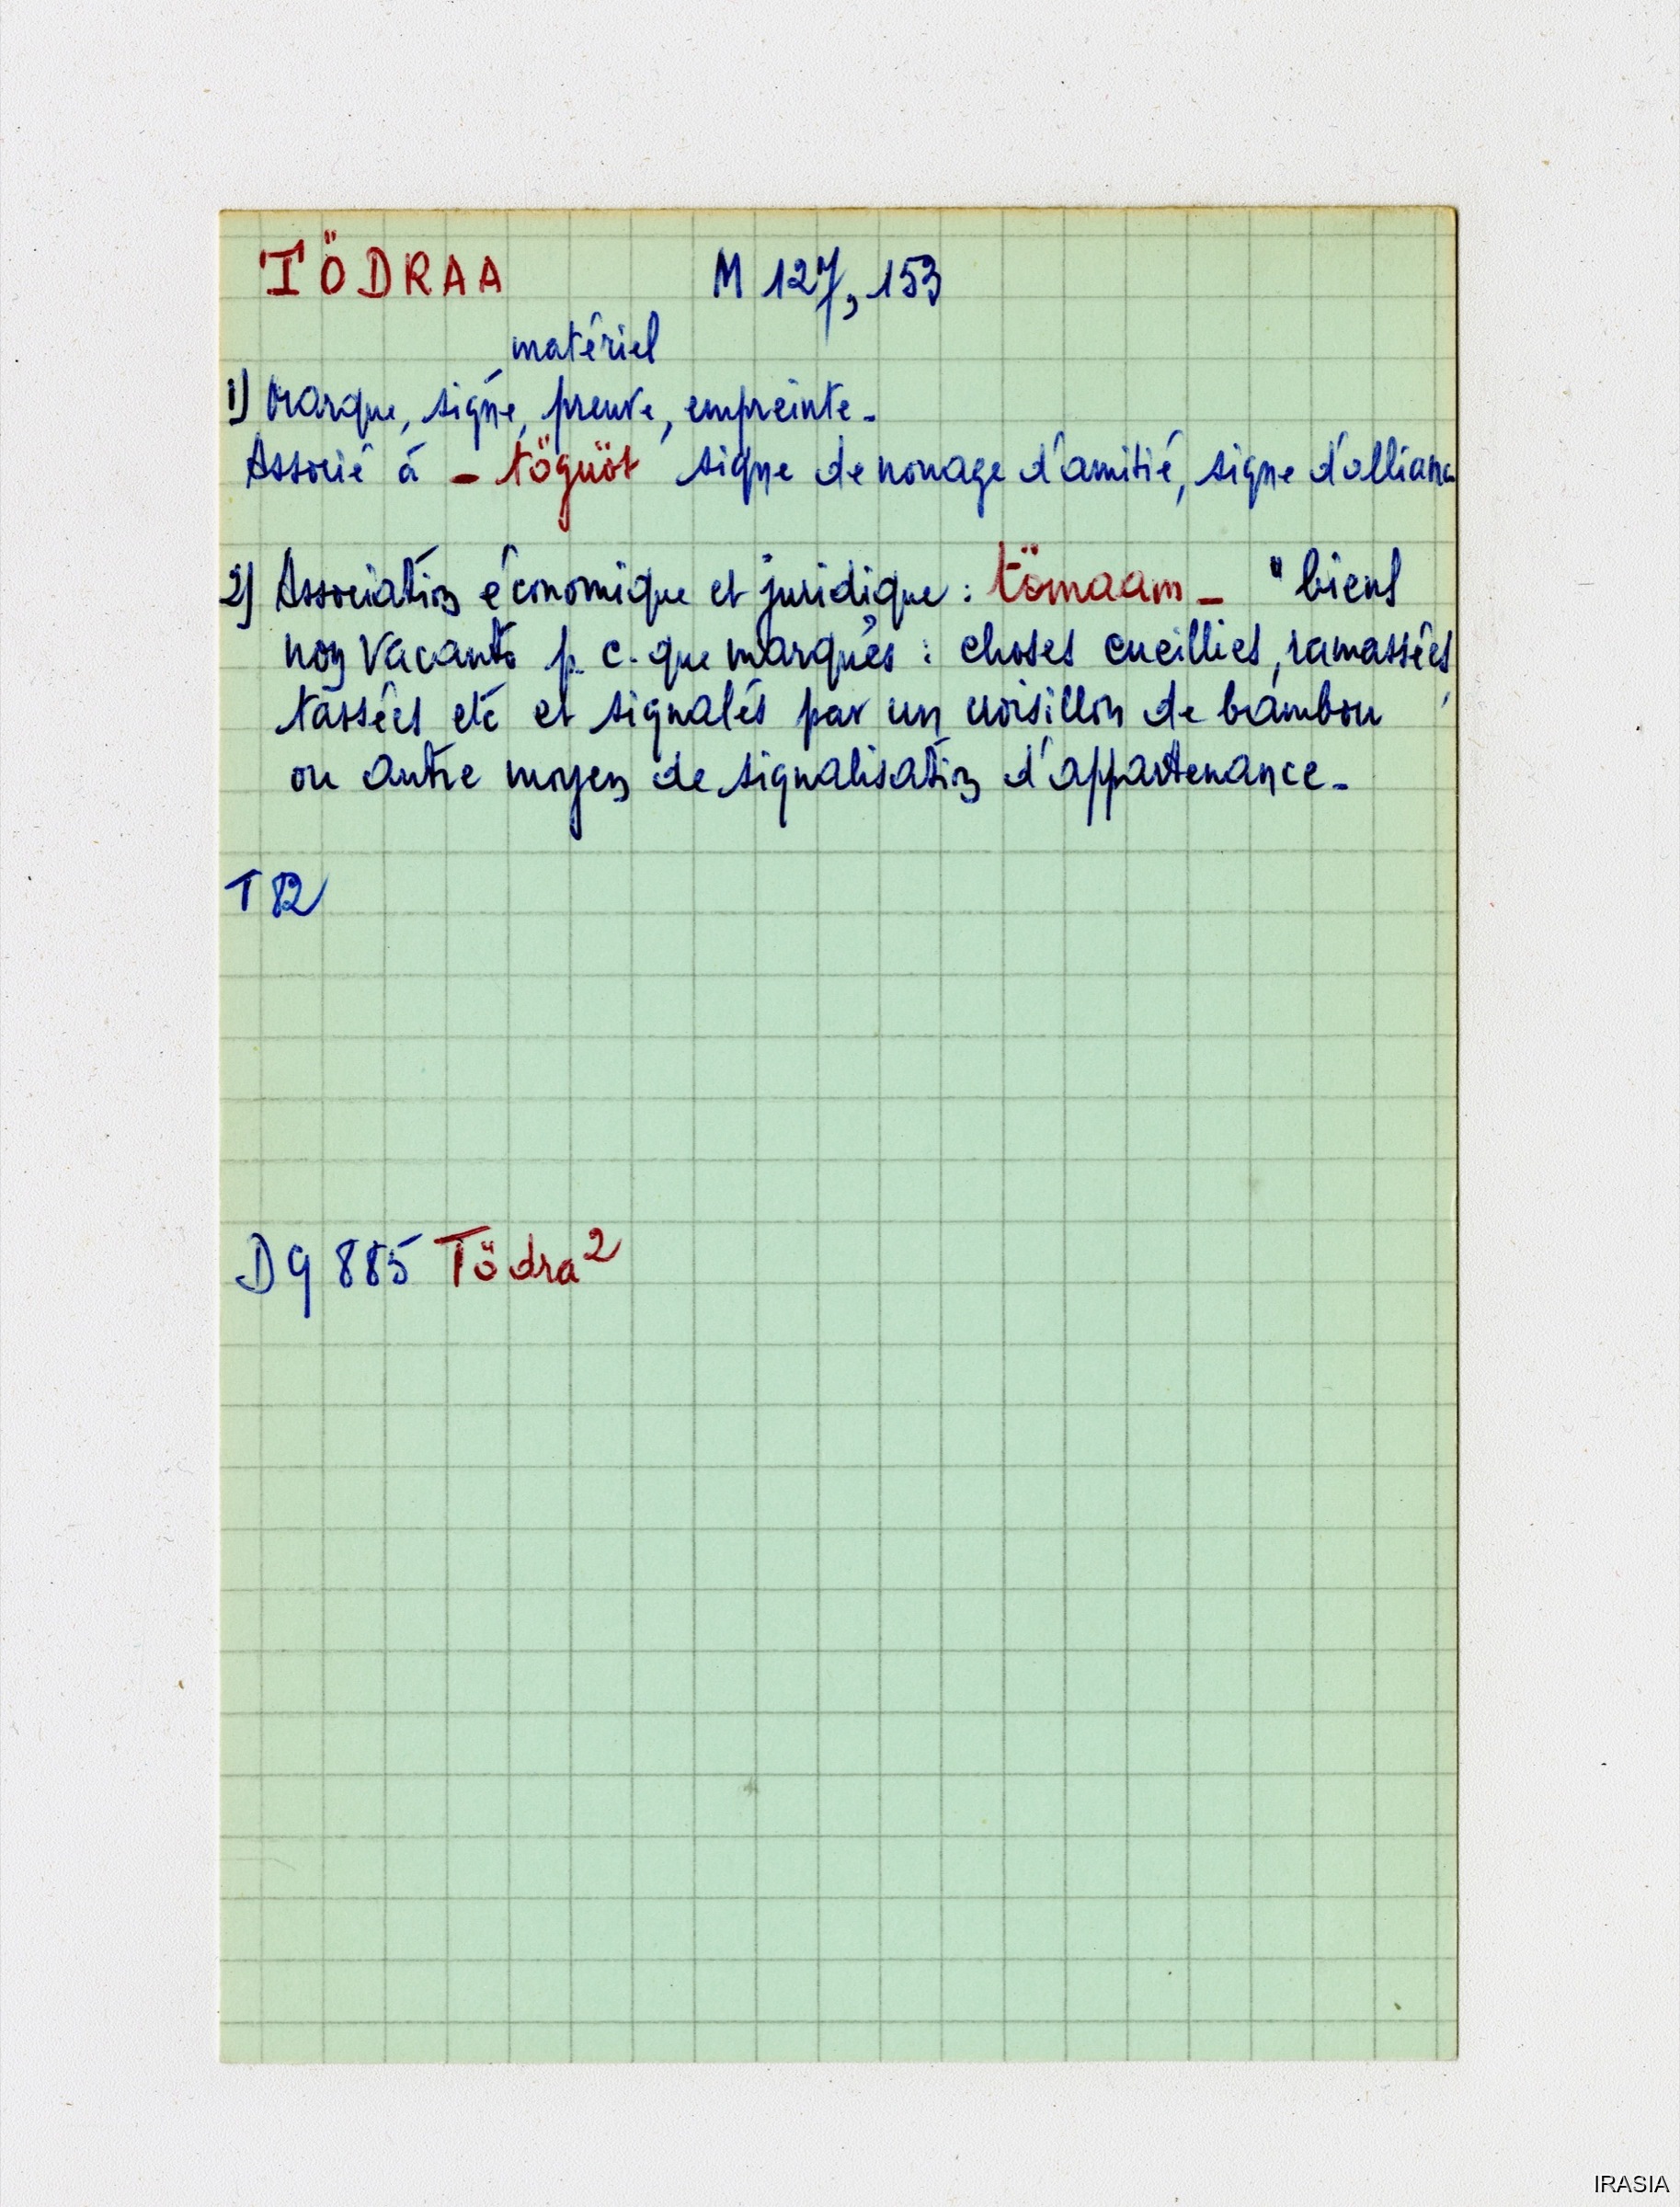 TÖDRAA M 127, 153
matériel
1) Marque, signe, preuve, empreinte.
Associé à - tögüöt signe de nouage d'amitié, signe d'alliance
2) Association économique et juridique : tömaam - "biens
non vacants p. c. que marqués : choses cueillies, ramassées,
tassées etc et signalés par un croisillon de bambou
ou autre moyen de signalisation d'appartenance.
T 82
DG 885 Tödra²
IRASIA